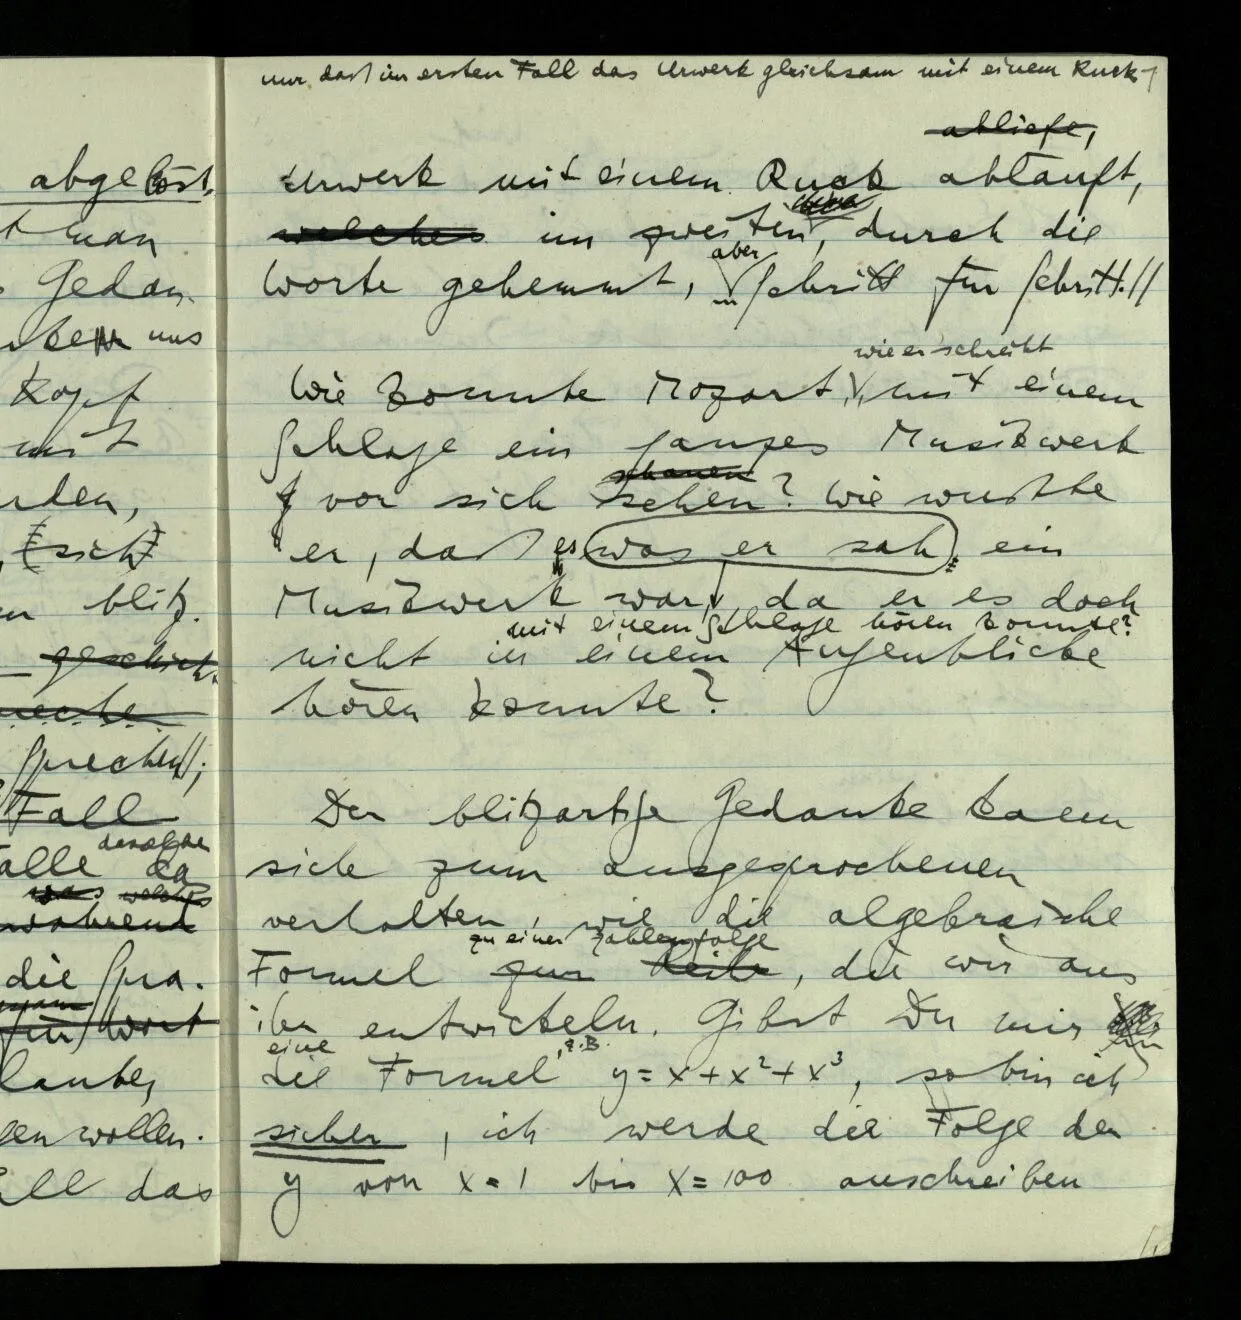 abgelöst,
t man
Gedan-
uns
Kopf
mit
rden,
(sich)
blitz-
geschieht
spreche
Sprechen;
Fall
alle da derselbe
was welches
während
die Spra-
für Wort
laube,
gen wollen.
all das
nur daß im ersten Fall das Urwerk gleichsam mit einem Ruck
abliefe,
Urwerk mit einem Ruck abläuft,
welches im zweiten, durch die
aber
Worte gehemmt, Schritt für Schritt.//
wie er schreibt
Wie konnte Mozart, mit einem
Schlage ein ganzes Musikwerk
schauen
vor sich sehen? Wie wußte
er, daß es was er sah, ein
Musikwerk war, da er es doch
mit einem Schlage hören konnte?
nicht in einem Augenblicke
hören konnte?
Der blitzartige Gedanke kann
sich zum ausgesprochenen
verhalten, wie die algebraische
zu einer Zahlenfolge
Formel zur Reihe, die wir aus
ihr entwickeln. Gibst Du mir
eine z.B.
die Formel y = x + x² + x³, so bin ich
sicher, ich werde die Folge der
y von x = 1 bis x = 100 anschreiben